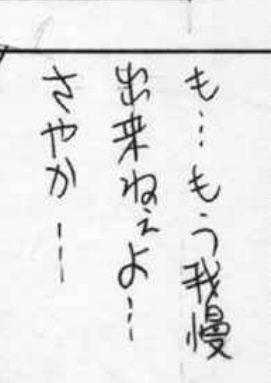 も…もう我慢
出来ねぇよ…
さやか…